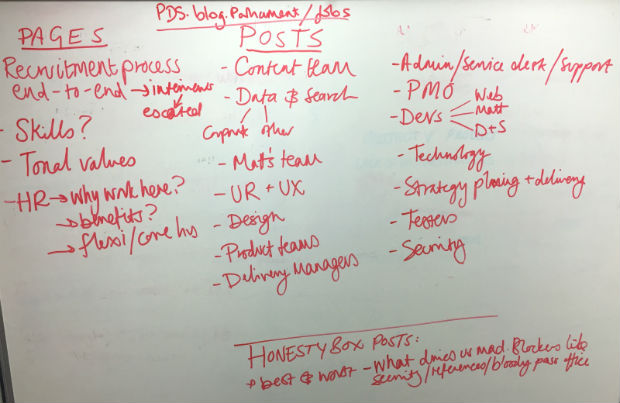 PDS.blog.Parliament/jobs
PAGES
Recruitment process
end-to-end → interviews
- Skills?
- Tonal values
- HR → why work here?
→ benefits?
→ flexi/core hrs
POSTS
- Content team
- Data & Search
other
- Mat's team
- UR + UX
- Design
- Product teams
- Delivery Managers
- Admin/Service clerk/support
- PMO
Web
- Devs
Matt
D+S
- Technology
- Strategy planing + delivery
- Testers
- Security
HONESTY BOX POSTS:
→ best & worst - What drives us mad. Blockers like
security/references/bloody pass office